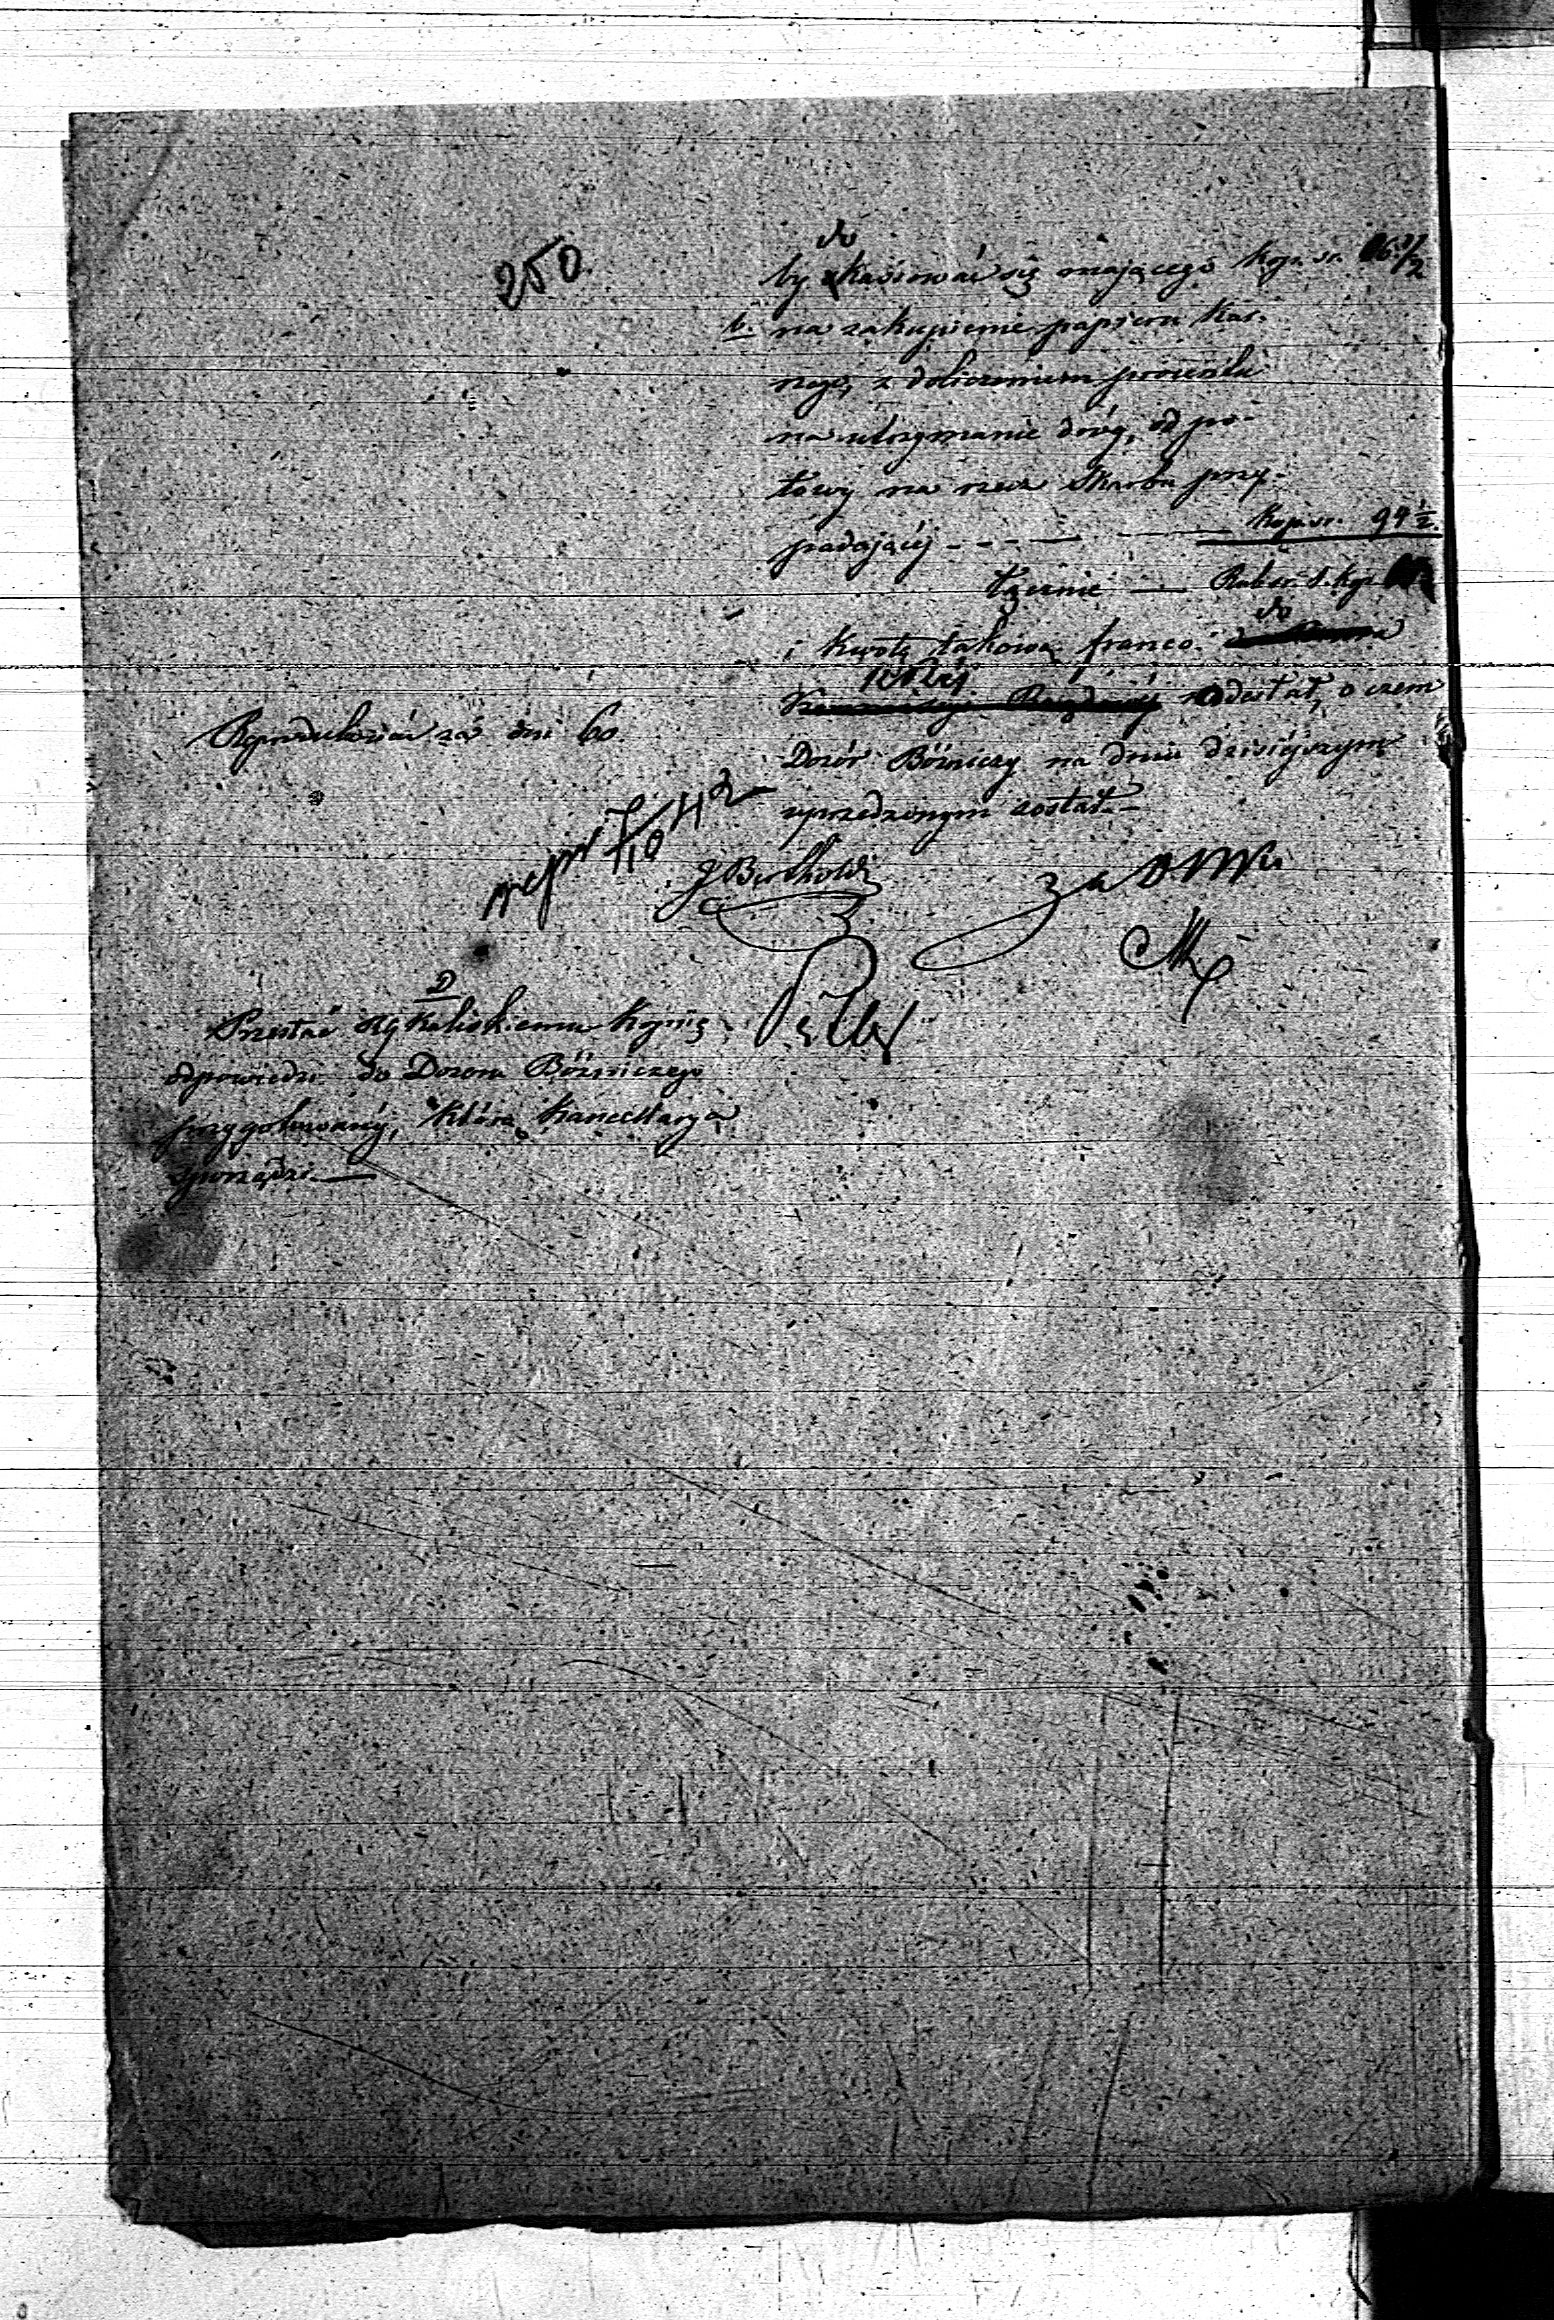 250
do
by kasować się mającego kop. sr. 16 1/2
b. na zakupienie papieru kar-
nego, z doliczeniem procentu
na utrzymanie dróg, od po-
łowy na rzecz Skarbu przy-
padającej - - - - Kop. sr. 99 1/2.
Łącznie — Rub. sr. 1. kop.
do
i kwotę takową franco
nadesłał, o czem
Dozór Bóżniczy na dniu dzisiejszym
uprzedzonym został.—
Reprodukować za dni 60
J Bertholdi
Za
Przesłać Rz. Kaliskiemu kopię
odpowiedzi do Dozoru Bóżniczego
przygotowanej, którą Kancellarya
sporządzi.—